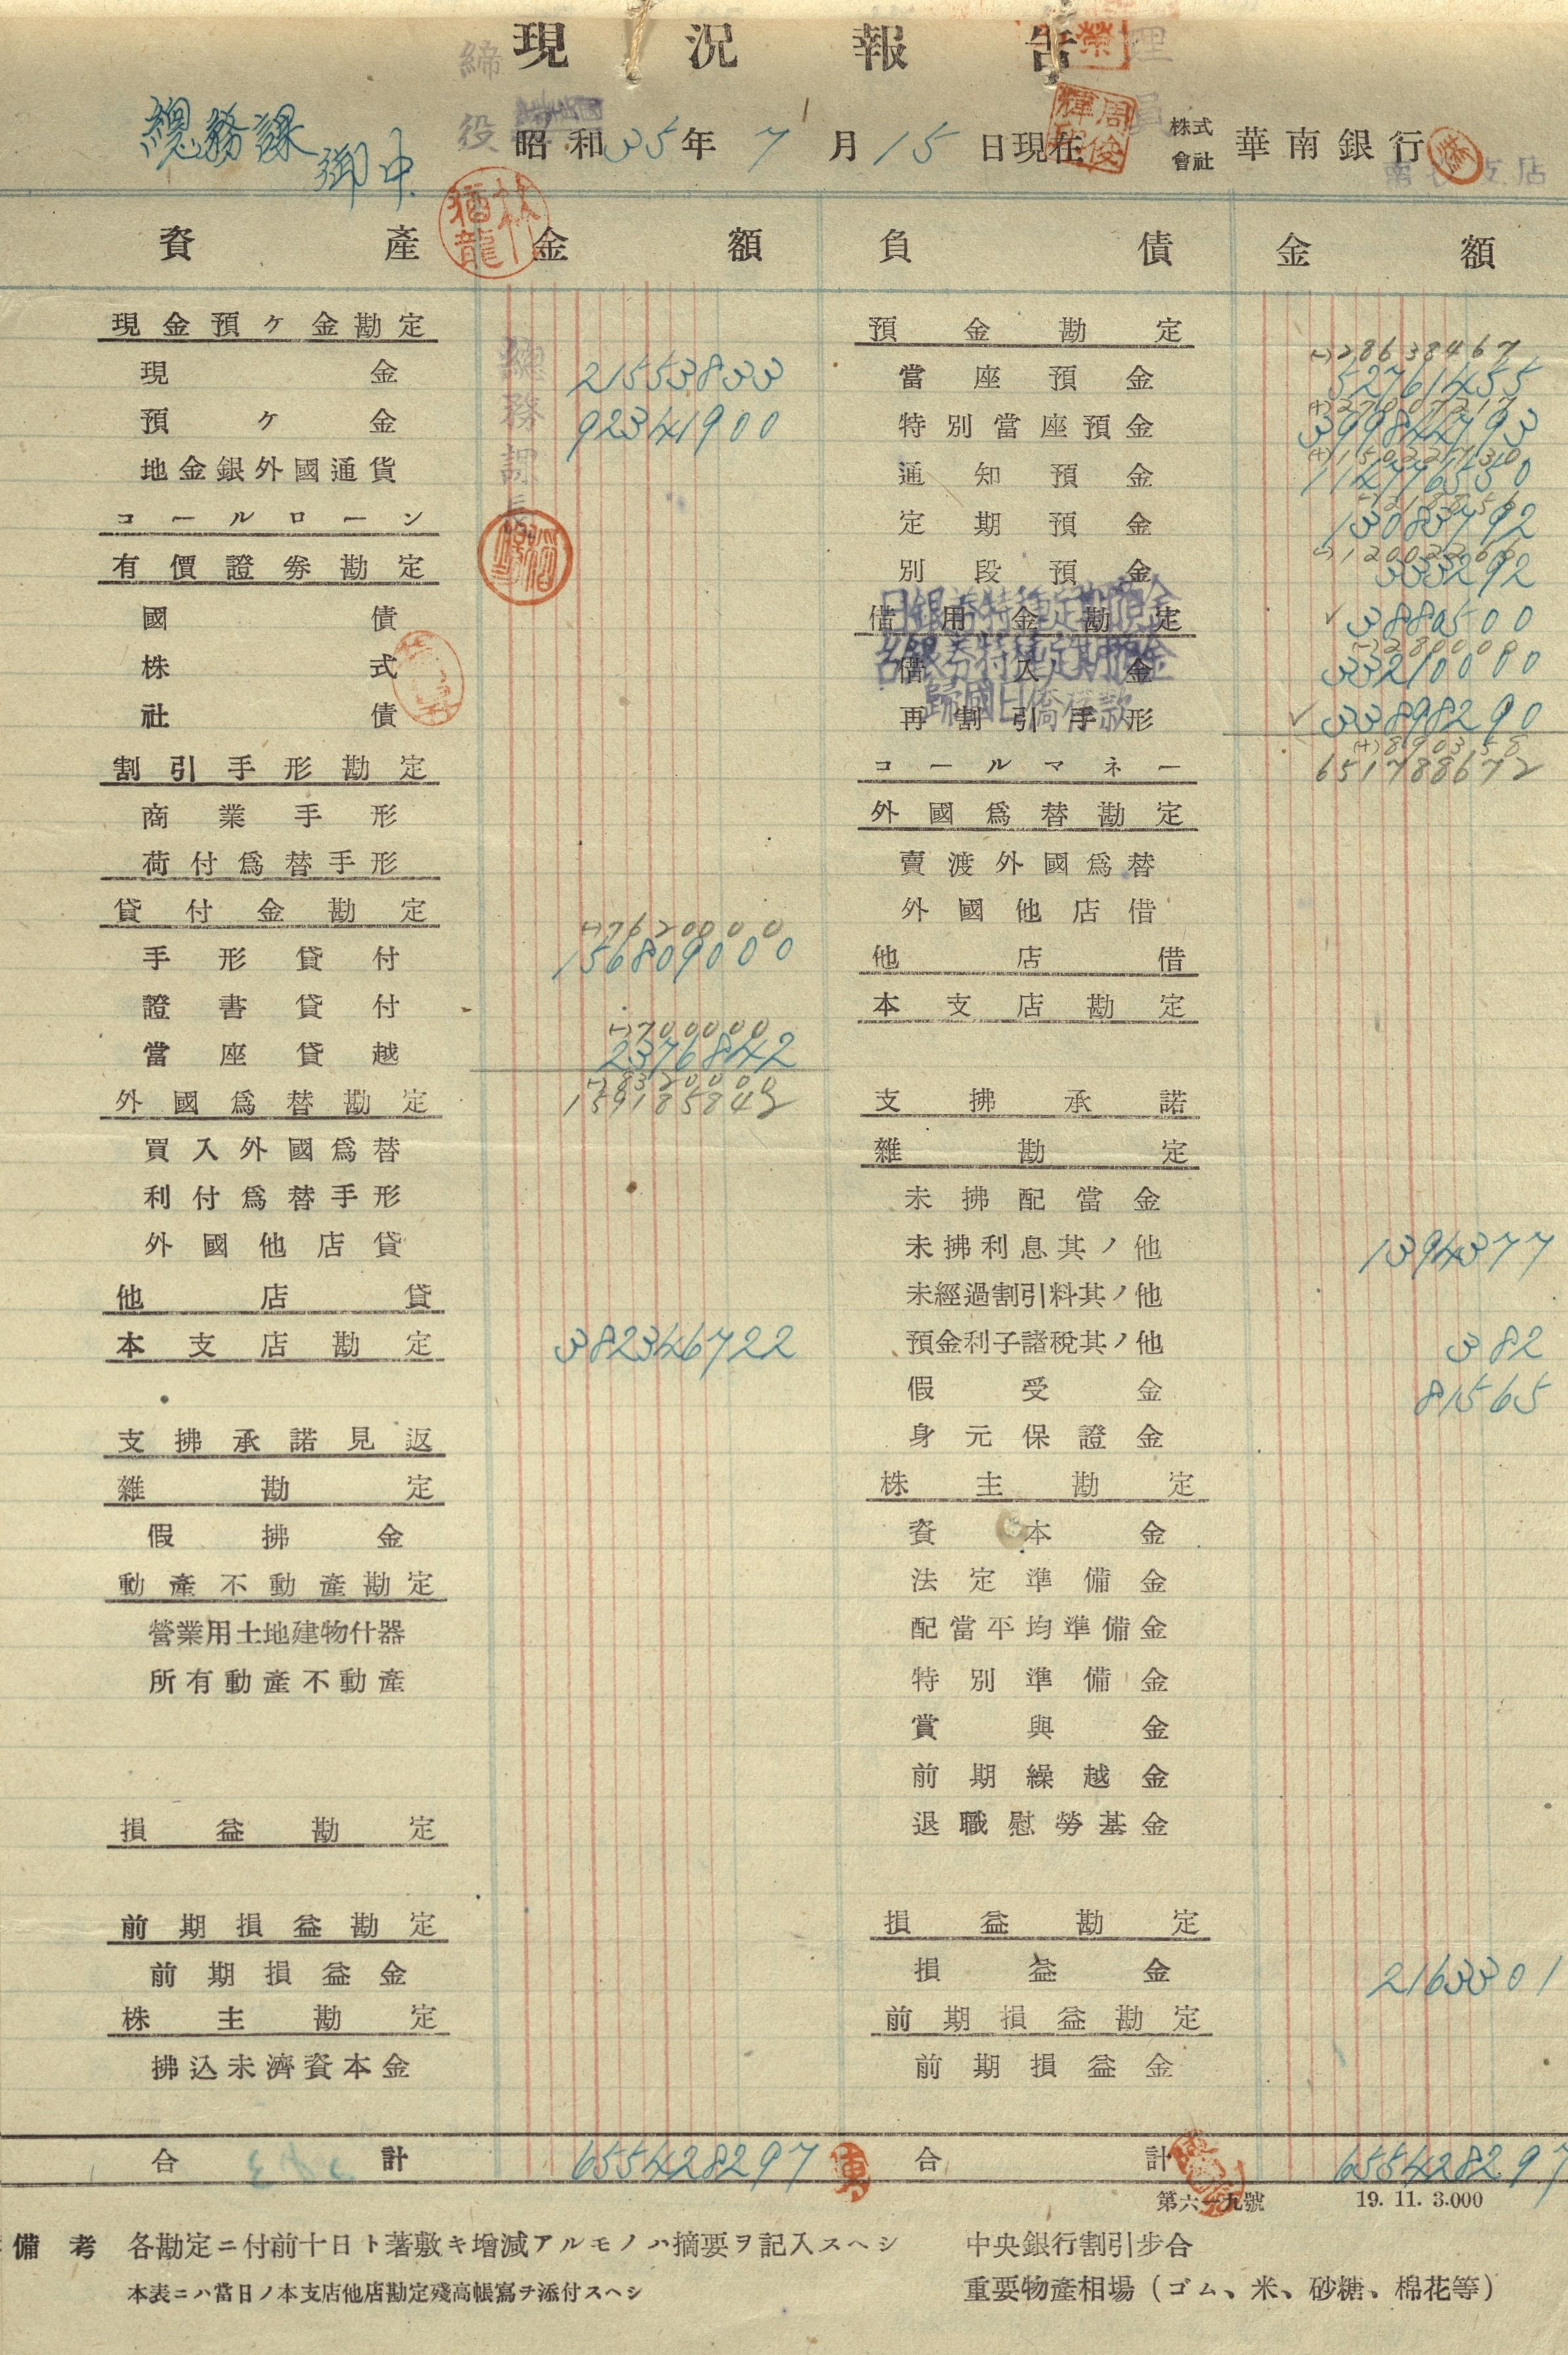 現況報告
總務課 御中
昭和35年7月15日現在
株式會社 華南銀行
資產 金額 負債 金額
現金預ケ金勘定 預金勘定
(-)28638467
現金 21553833 當座預金 52761455
預ケ金 92341900 特別當座預金
地金銀外國通貨 通知預金 114776550
コールローン 定期預金 13083792
有價證券勘定 別段預金 333292
國債 借用金勘定 3880500
日銀券特種定期預金
株式 借入金 33210000
台銀券特種定期預金
社債 再割引手形 33898290
歸國日僑存款
割引手形勘定 コールマネー 651788672
商業手形 外國爲替勘定
荷付爲替手形 賣渡外國爲替
貸付金勘定 外國他店借
(-)7620000
手形貸付 156809000 他店借
證書貸付 本支店勘定
(-)700000
當座貸越 2376842
(-)8320000
外國爲替勘定 159185842 支拂承諾
買入外國爲替 雜勘定
利付爲替手形 未拂配當金
外國他店貸 未拂利息其ノ他 1394377
他店貸 未經過割引料其ノ他
本支店勘定 382346722 預金利子諸稅其ノ他 382
假受金 81565
支拂承諾見返 身元保證金
雜勘定 株主勘定
假拂金 資本金
動產不動產勘定 法定準備金
營業用土地建物什器 配當平均準備金
所有動產不動產 特別準備金
賞與金
前期繰越金
損益勘定 退職慰勞基金
前期損益勘定 損益勘定
前期損益金 損益金 2163301
株主勘定 前期損益勘定
拂込未濟資本金 前期損益金
合計 655428297 合計 655428297
第六一九號 19. 11. 3.000
備考 各勘定ニ付前十日ト著敷キ增減アルモノハ摘要ヲ記入スヘシ 中央銀行割引步合
本表ニハ當日ノ本支店他店勘定殘高帳寫ヲ添付スヘシ 重要物產相場（ゴム、米、砂糖、棉花等）